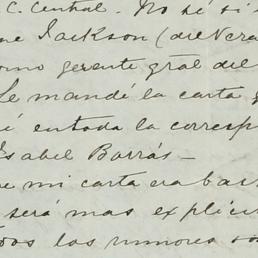 C. Central. No sé si
ne Jackson (del Vera
omo gerente gral del
Le mandé la carta
é entoda la corresp
Isabel Barrás -
e mi carta era bas
será mas explíci
Todos los rumores